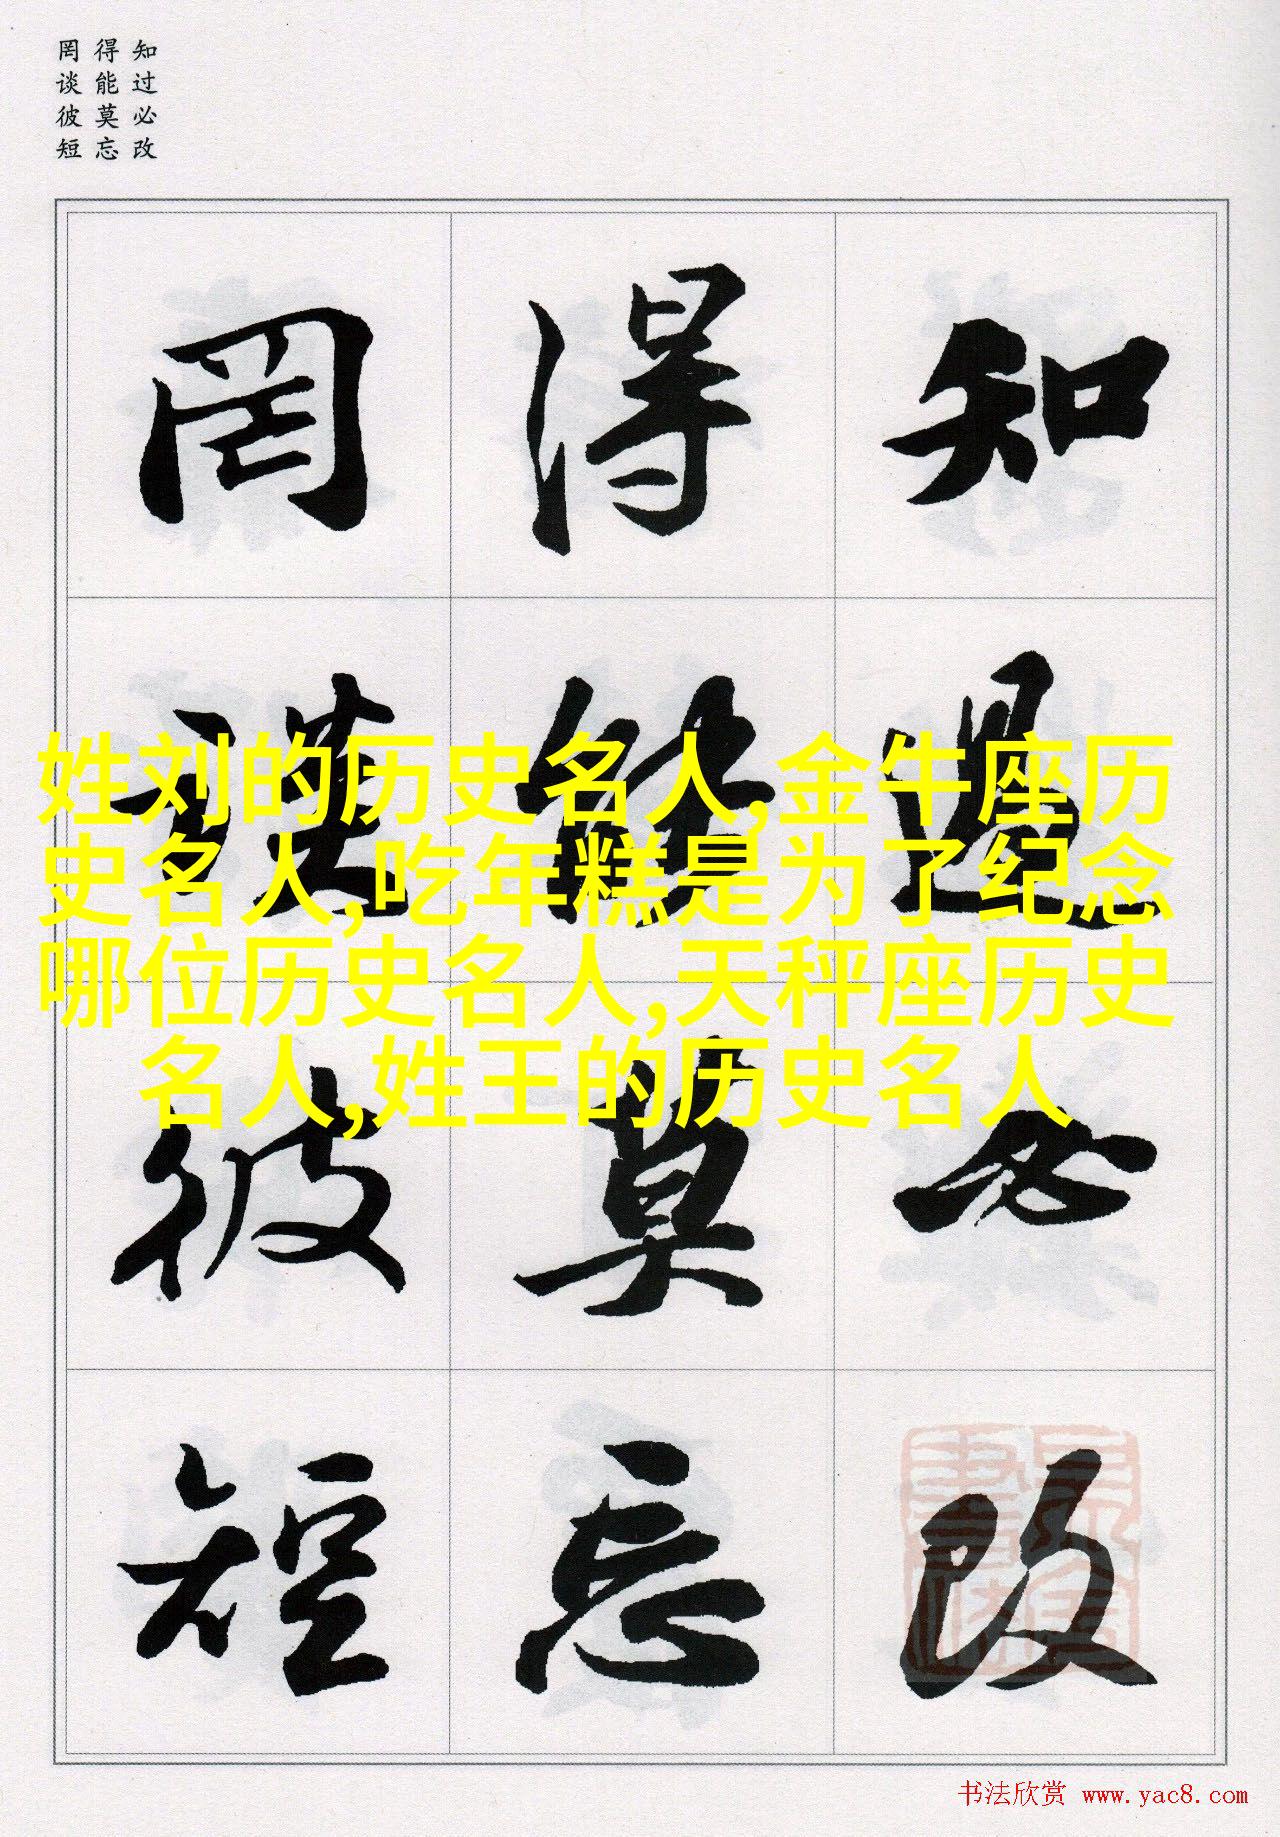 知过必改
得能莫忘
罔谈彼短
知過必改
得能莫忘
罔談彼短
姓刘的历史名人,金牛座历
史名人,吃年糕是为了纪念
哪位历史名人,天秤座历史
名人,姓王的历史名人
书法欣赏 www.yac8.com